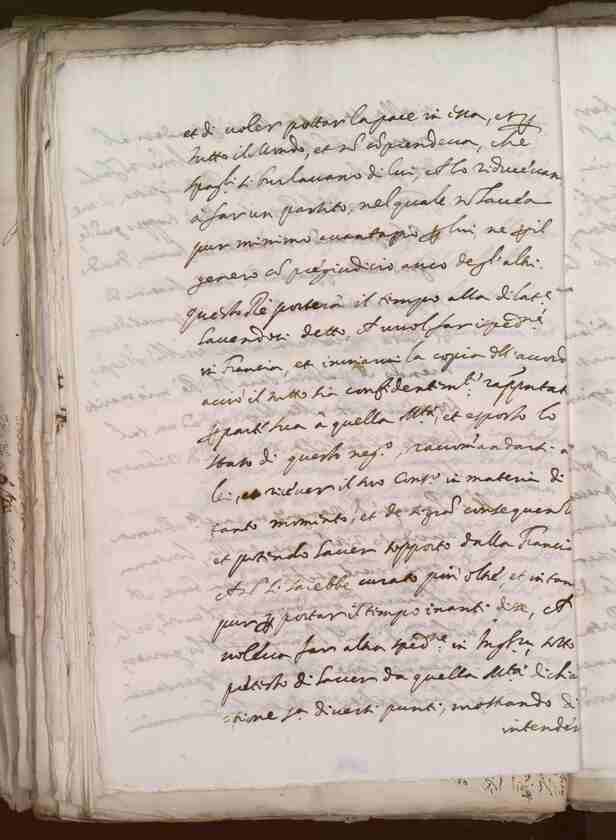 et di voler portar la pace in essa, et
tutto il Mondo, et nō cōprendeva, che
Spag.li si burlavano di lui, et lo riducevan
à far un partito, nel quale nō haveva
pur minimo avantagio lui ne il
genero cō pregiudicio anco degl'altri.
questo Rè porterà il tempo alla
havendosi detto vuol far
in Francia, et inviarvi la copia dell'accordo
acciò il tutto sia confidentem.te rappntat
part sua à quella M.tà, et esposto lo
stato di questo neg.o, raccomandarsi à
lei, et ricever il suo Cons.o in materia di
tanto momento, et de sì grā consequenti
et potendo haver dalla Francia
si sarebbe curato più oltre, et in tan
pur portar il tempo inanti disse,
voleva far altra sped.ne in Ingl.ra, sotto
ptesto di haver da quella M.tà dichia
=tione s.a diversi punti, mostrando di
intender